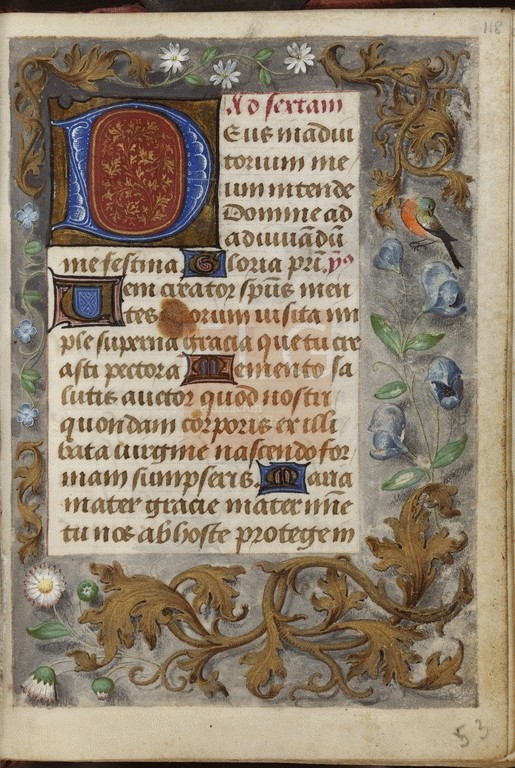 118
Ad sextam
Deus in adiu
torium me
um intende
Domine ad
adiuuādū
me festina. Gloria pri. ps
Veni creator spūs men
tes uorum uisita im
ple superna gracia que tu cre
asti pectora Memento sa
lutis auctor quod nostri
quondam corporis ex illi
bata uirgine nascendo for
mam sumpseris. Maria
mater gracie mater mīe
tu nos ab hoste protege in
53